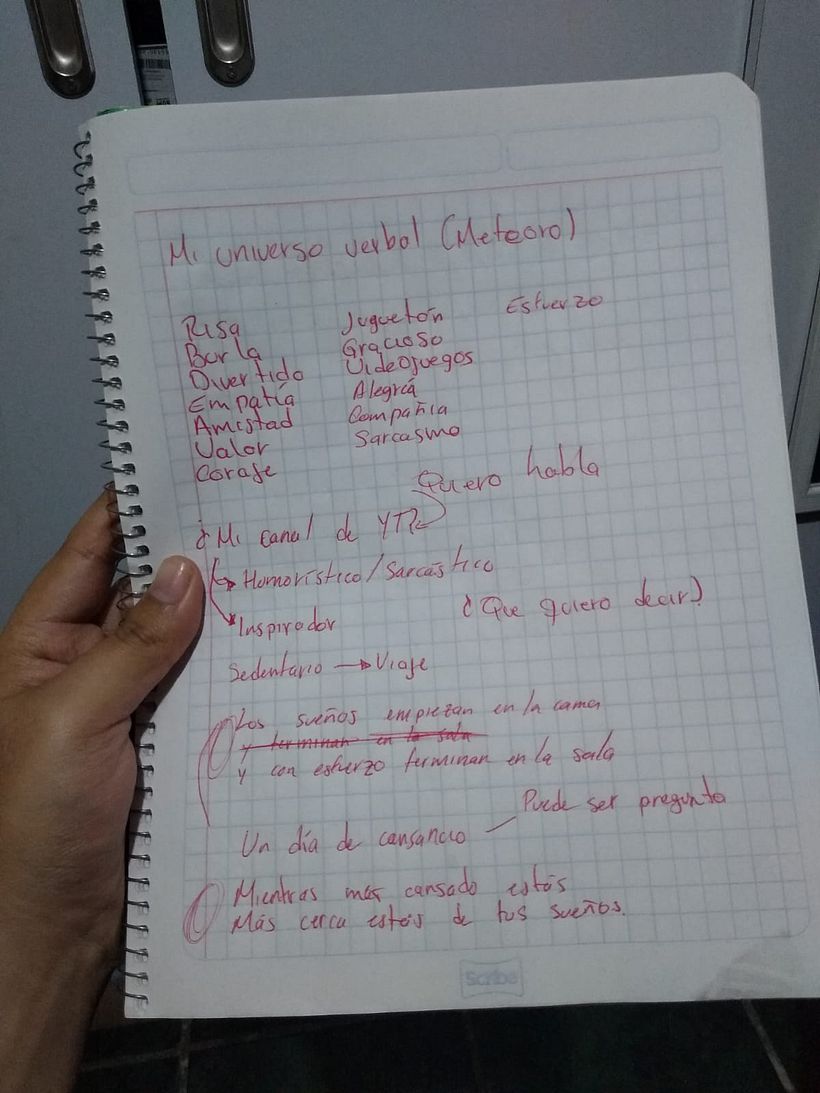 Mi universo verbal (Meteoro)
Risa
Burla
Divertido
Empatía
Amistad
Valor
Coraje
Juguetón
Gracioso
Videojuegos
Alegría
Compañia
Sarcasmo
Esfuerzo
Quiero habla
¿Mi canal de YT?
Humorístico/Sarcástico
Inspirador
¿Que quiero decir?
Sedentario → Viaje
Los sueños empiezan en la cama
y terminan en la sala
y con esfuerzo terminan en la sala
Puede ser pregunta
Un día de cansancio
Mientras más cansado estás
Más cerca estás de tus sueños.
Scribe